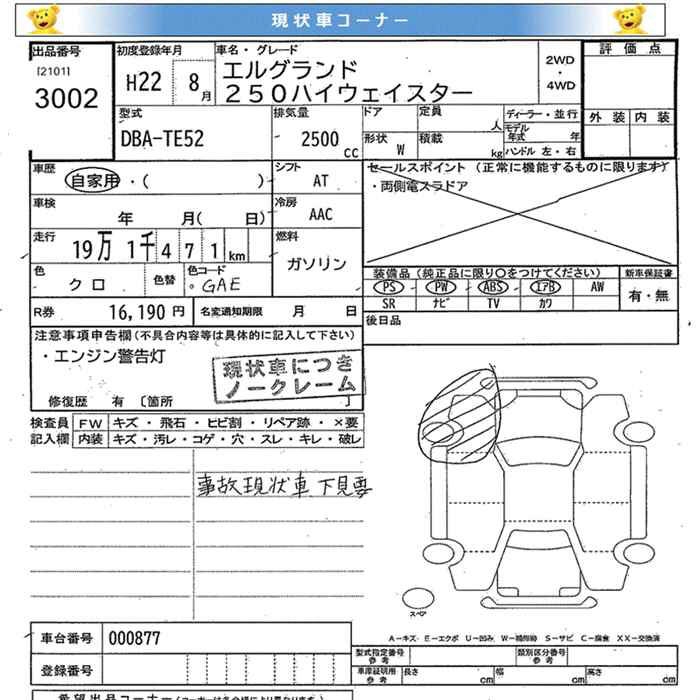 現状車コーナー
出品番号 初度登録年月 車名・グレード 評価点
[2101] 3002 H22 8月 エルグランド 2WD・4WD
250ハイウェイスター
外装 内装
型式 排気量 ドア 定員 ディーラー・並行
DBA-TE52 2500 cc 人 モデル年式 年
形状 W 積載 kg ハンドル 左・右
車歴 シフト セールスポイント (正常に機能するものに限ります)
自家用・( ) AT ・両側電スラドア
車検 冷房
年 月( 日) AAC
走行 燃料
19万 1千 4 7 1 km ガソリン
色 色替 色コード 装備品 (純正品に限り○をつけてください) 新車保証書
クロ GAE PS PW ABS エアB AW 有・無
SR ナビ TV カワ
R券 16,190 円 名変通知期限 月 日 後日品
注意事項申告欄(不具合内容等は具体的に記入して下さい)
・エンジン警告灯
現状車につき
ノークレーム
修復歴 有 〔箇所 〕
検査員 FW キズ・飛石・ヒビ割・リペア跡・×要
記入欄 内装 キズ・汚レ・コゲ・穴・スレ・キレ・破レ
事故現状車 下見要
スペア
A-キズ E-エクボ U-凹み W-補修跡 S-サビ C-腐食 XX-交換済
車台番号 000877 型式指定番号 参考 類別区分番号 参考
登録番号 車庫証明用 参考 長さ cm 幅 cm 高さ cm
希望出品コーナー